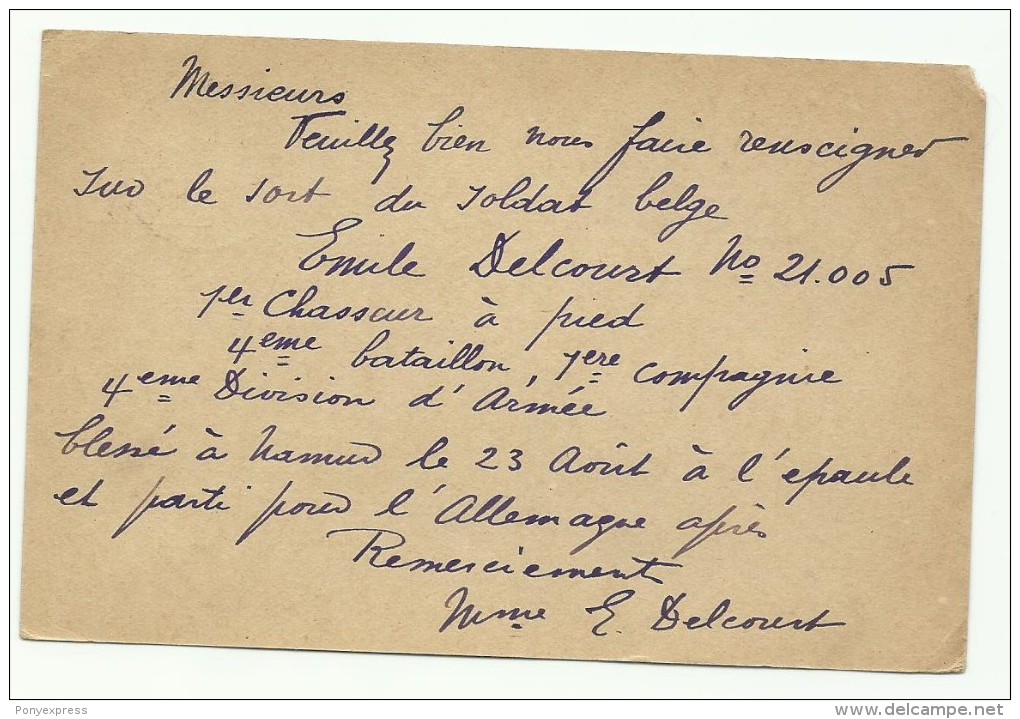 Messieurs
Veuillez bien nous faire renseigner
sur le sort du soldat belge
Emile Delcourt No 21.005
1er Chasseur à pied
4eme bataillon, 1ere compagnie
4eme Division d'Armée
blessé à Namur le 23 Août à l'epaule
et parti pour l'Allemagne après
Remerciements
Mme E. Delcourt
Ponyexpress
www.delcampe.net